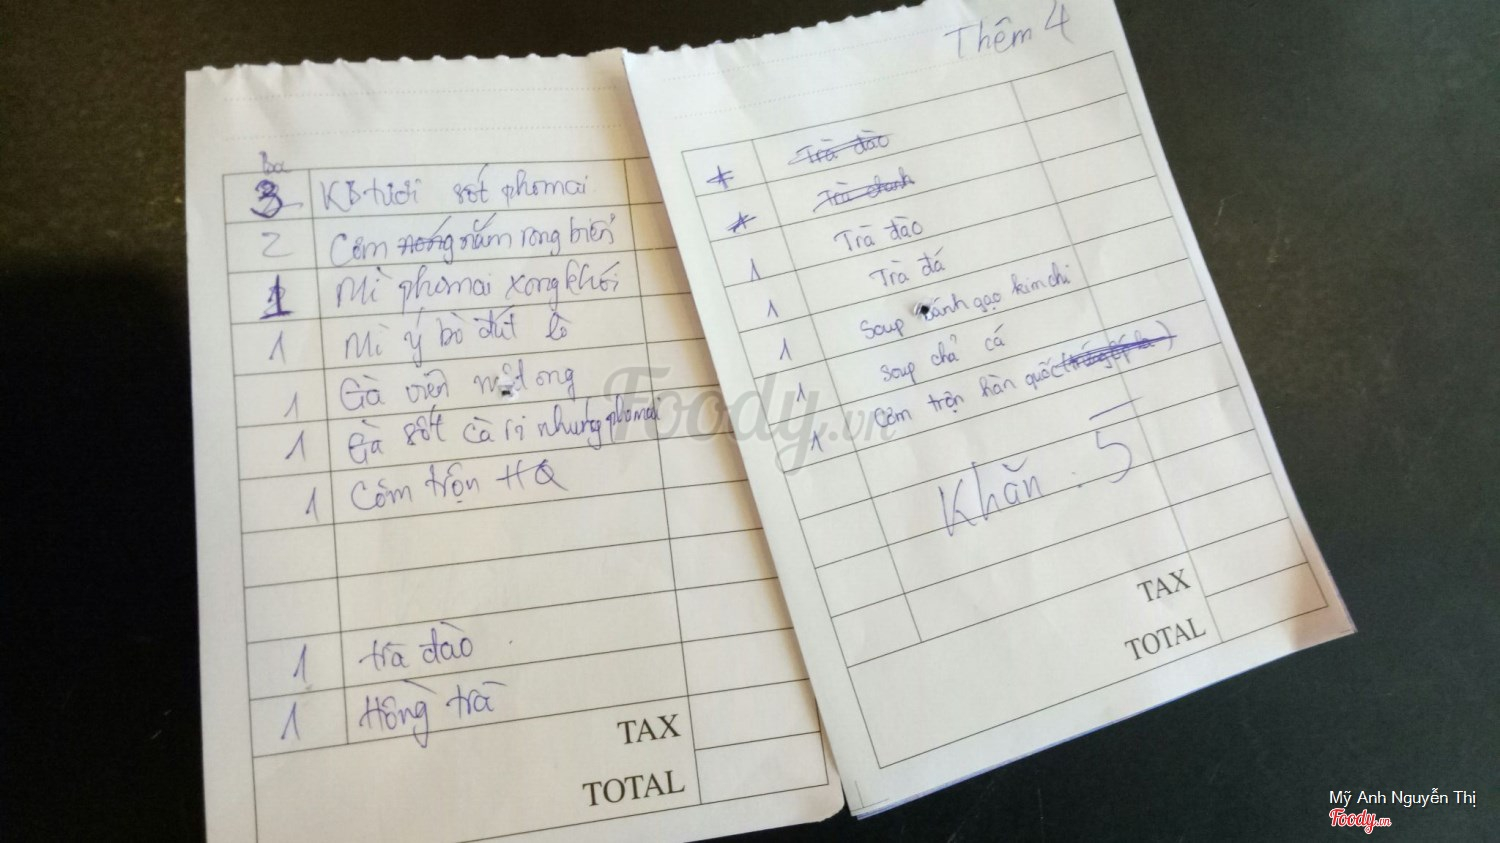 ba
3 KB tươi sốt phomai
2 Cơm nóng nắm rong biển
1 Mì phomai xong khói
1 Mì ý bò đút lò
1 Gà viên mật ong
1 Gà sốt cà ri nhưng phomai
1 Cơm trộn HQ
1 trà đào
1 Hồng trà
TAX
TOTAL
Thêm 4
Trà đào
Trà chanh
1 Trà đào
1 Trà đá
1 Soup bánh gạo kim chi
1 Soup chả cá
1 Cơm trộn hàn quốc
Khăn . 5
TAX
TOTAL
Foody.vn
Mỹ Anh Nguyễn Thị
Foody.vn